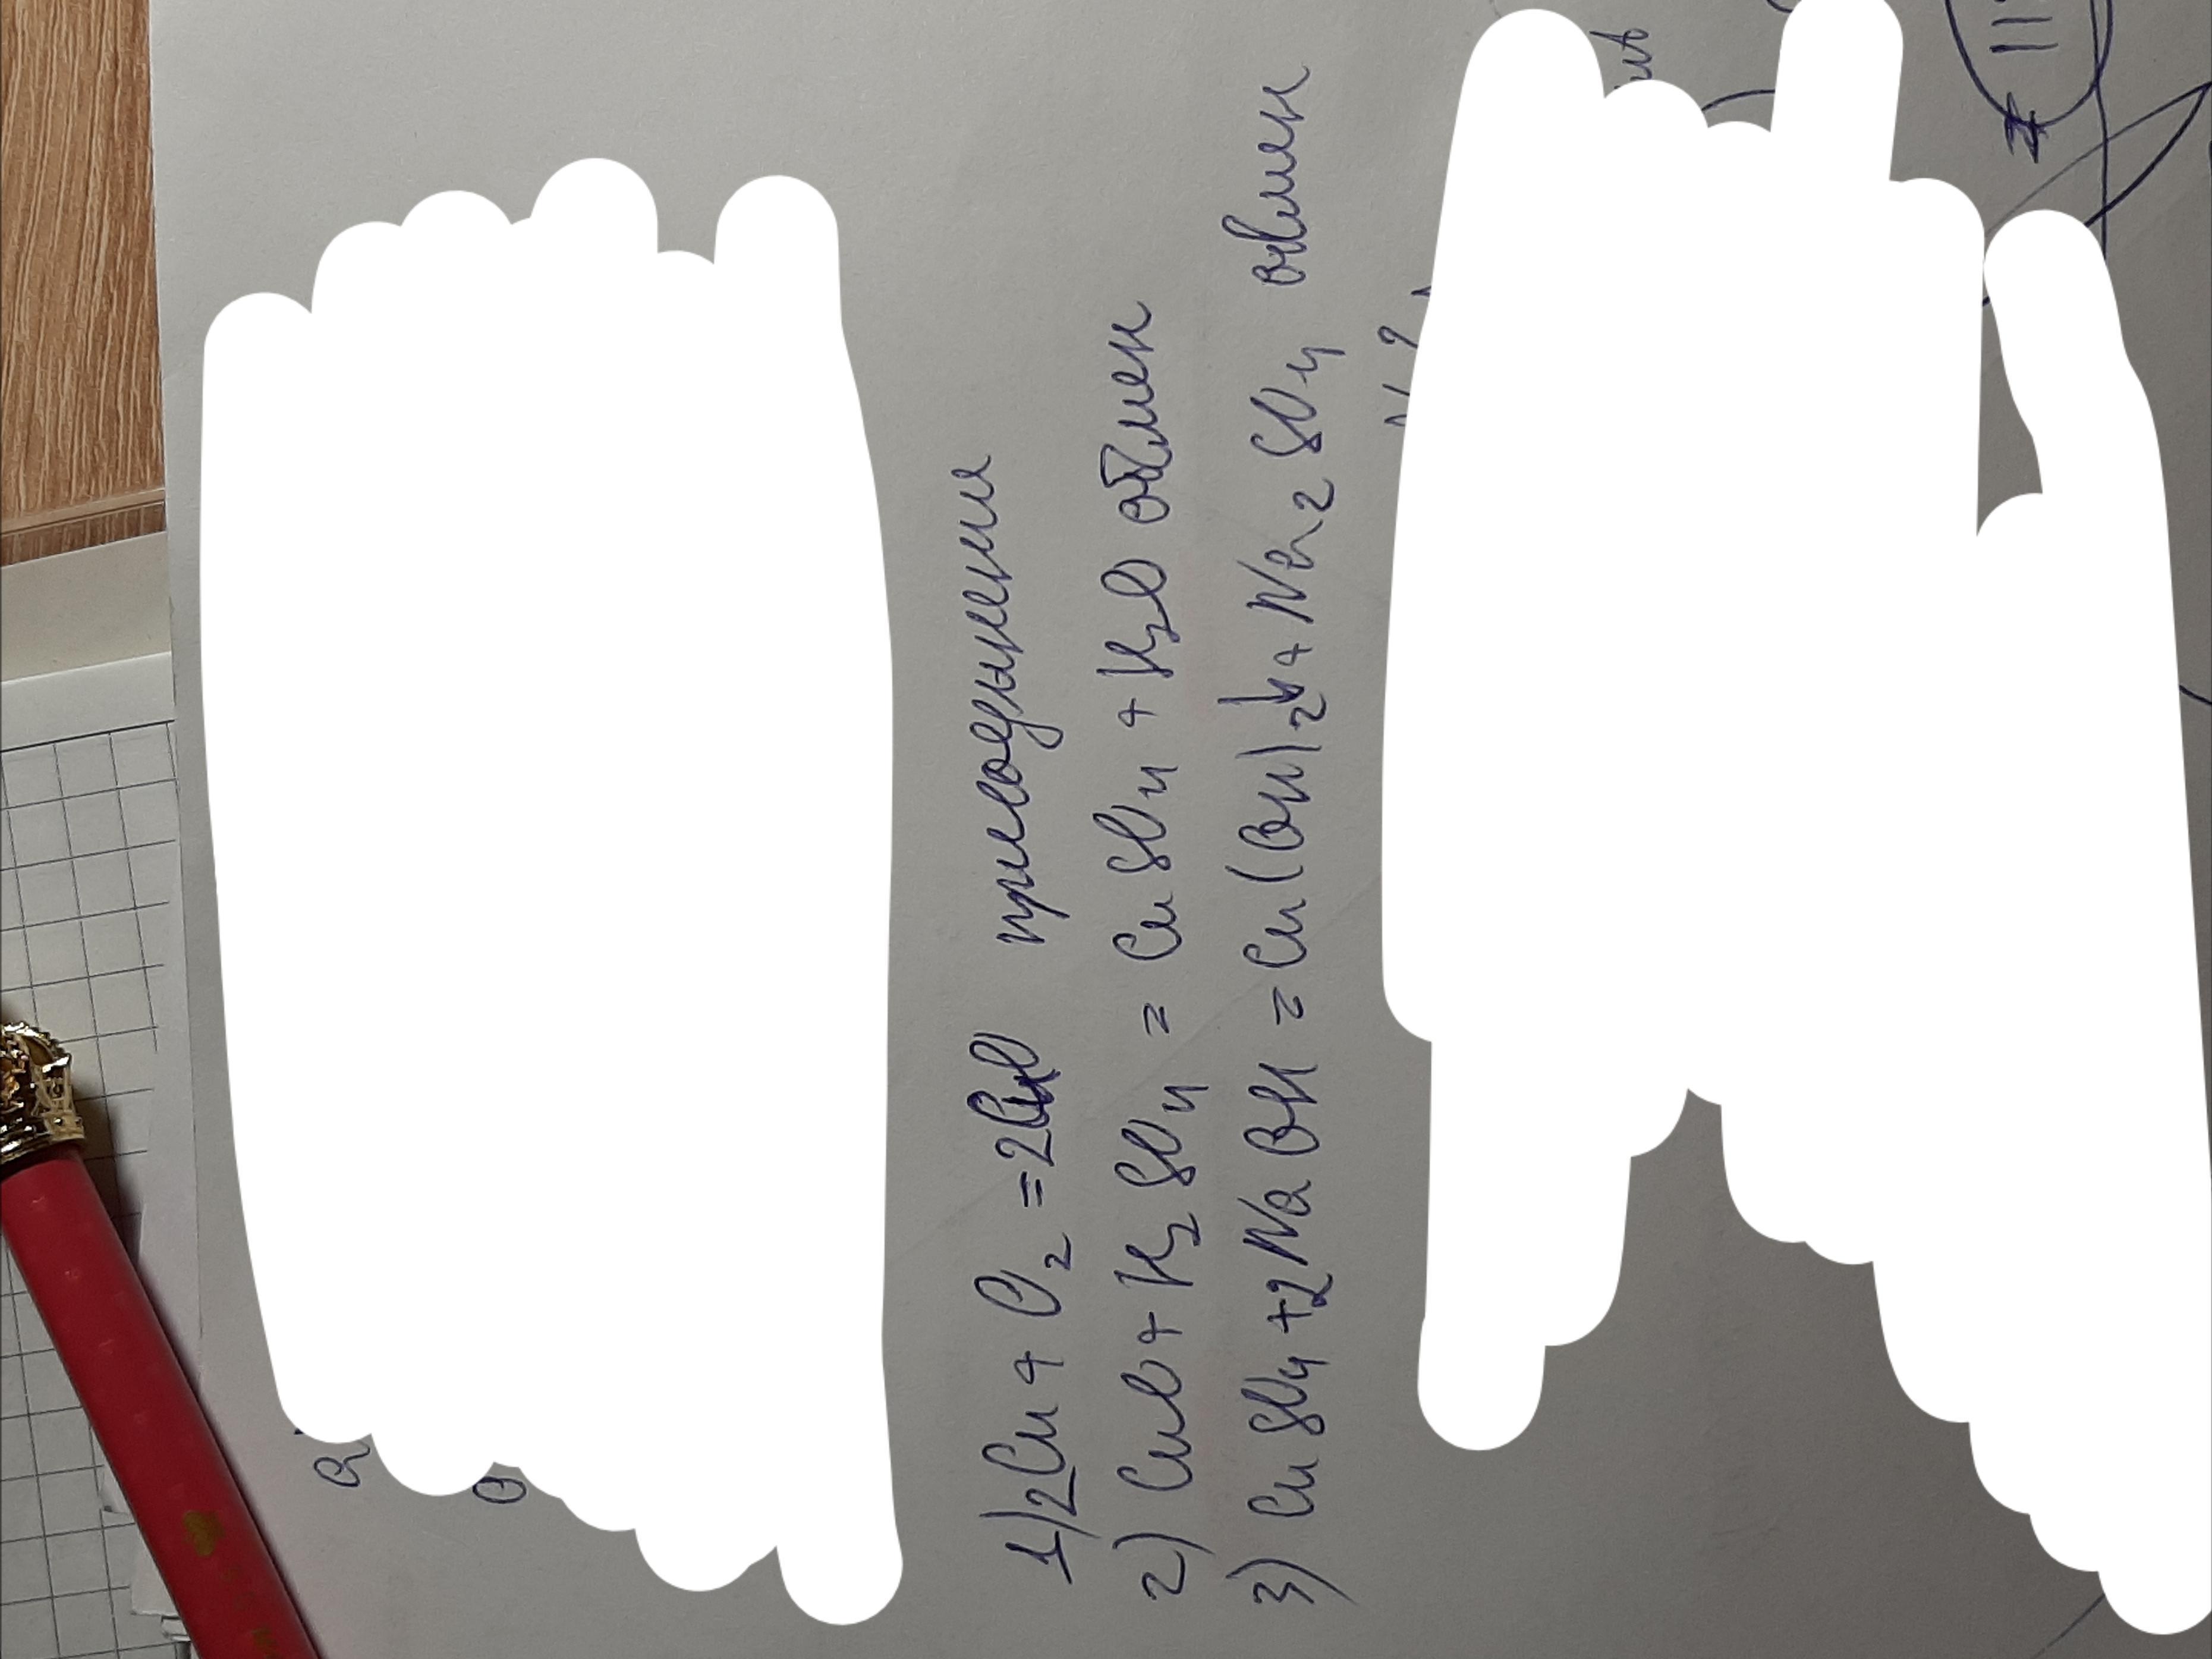 1) 2Cu + O₂ = 2CuO присоединения
2) CuO + H₂SO₄ = CuSO₄ + H₂O обмен
3) CuSO₄ + 2NaOH = Cu(OH)₂↓ + Na₂SO₄ обмен